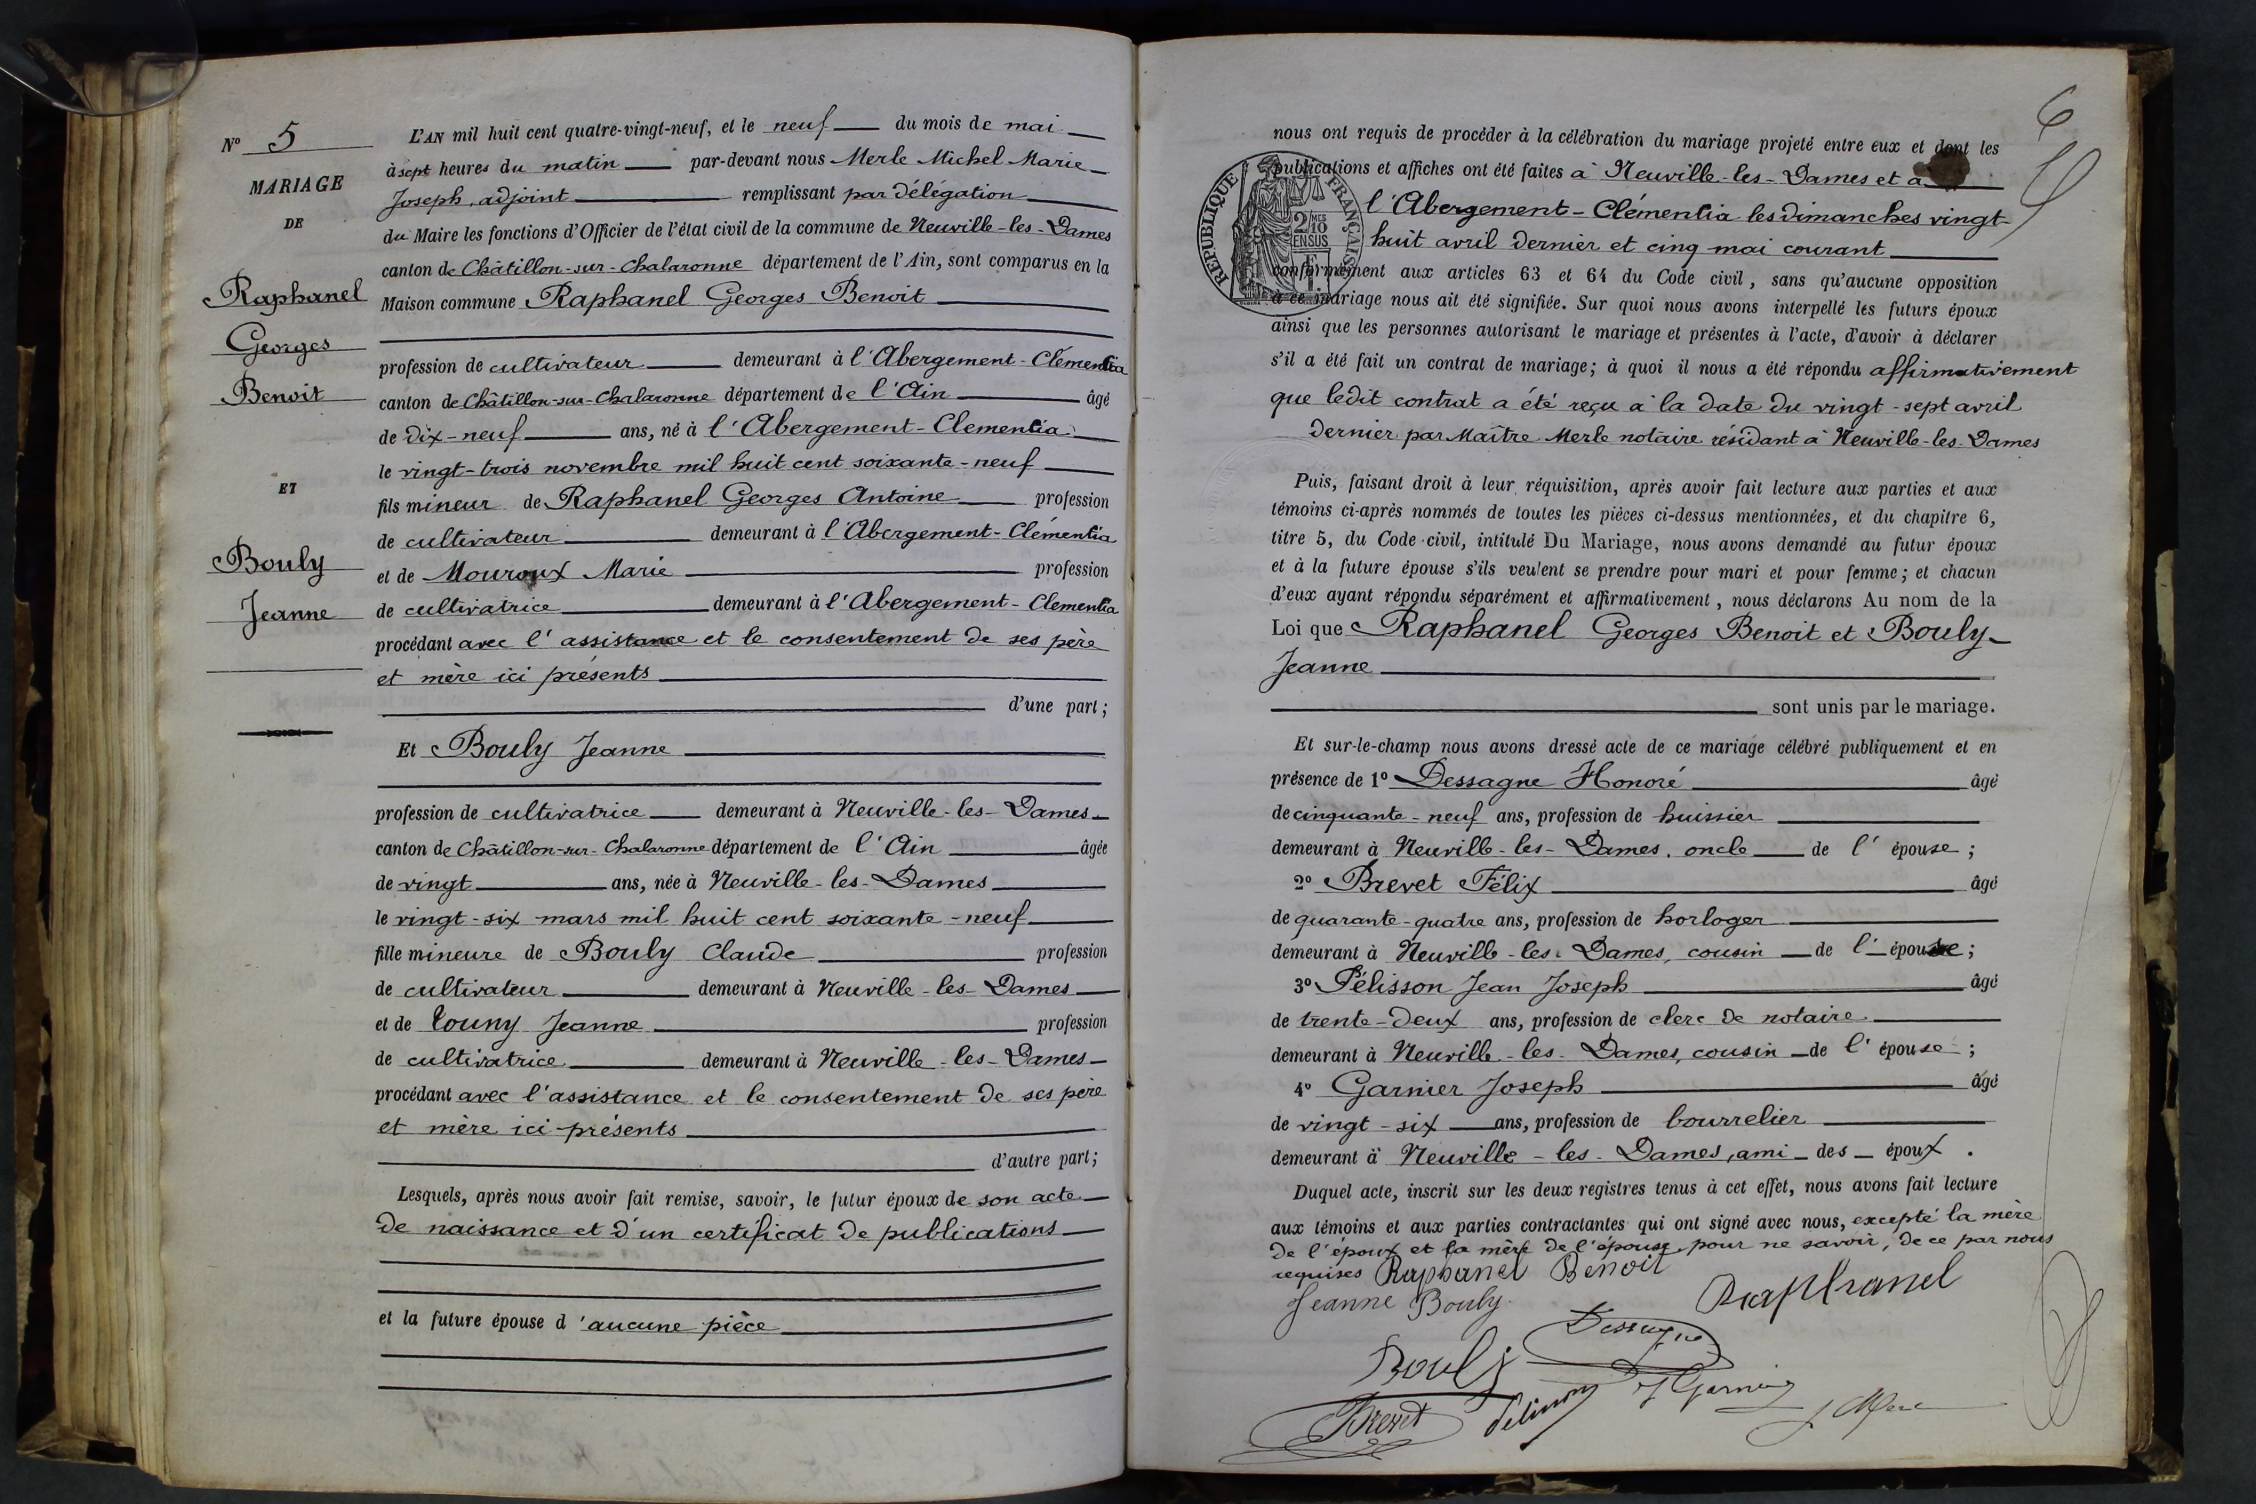 N° 5
MARIAGE
DE
Raphanel
Georges
Benoit
ET
Bouly
Jeanne
L'AN mil huit cent quatre-vingt-neuf, et le neuf du mois de mai
à sept heures du matin par-devant nous Merle Michel Marie
Joseph, adjoint remplissant par délégation
du Maire les fonctions d'Officier de l'état civil de la commune de Neuville-les-Dames
canton de Châtillon-sur-Chalaronne département de l'Ain, sont comparus en la
Maison commune Raphanel Georges Benoit
profession de cultivateur demeurant à l'Abergement-Clémentia
canton de Châtillon-sur-Chalaronne département de l'Ain âgé
de dix-neuf ans, né à l'Abergement-Clementia
le vingt-trois novembre mil huit cent soixante-neuf
fils mineur de Raphanel Georges Antoine profession
de cultivateur demeurant à l'Abergement-Clémentia
et de Mouroux Marie profession
de cultivatrice demeurant à l'Abergement-Clementia
procédant avec l'assistance et le consentement de ses père
et mère ici présents
d'une part;
Et Bouly Jeanne
profession de cultivatrice demeurant à Neuville-les-Dames
canton de Châtillon-sur-Chalaronne département de l'Ain âgée
de vingt ans, née à Neuville-les-Dames
le vingt-six mars mil huit cent soixante-neuf
fille mineure de Bouly Claude profession
de cultivateur demeurant à Neuville-les-Dames
et de Jeanne profession
de cultivatrice demeurant à Neuville-les-Dames
procédant avec l'assistance et le consentement de ses père
et mère ici présents
d'autre part;
Lesquels, après nous avoir fait remise, savoir, le futur époux de son acte
de naissance et d'un certificat de publications
et la future épouse d'aucune pièce
nous ont requis de procéder à la célébration du mariage projeté entre eux et dont les
publications et affiches ont été faites à Neuville-les-Dames et à
l'Abergement-Clémentia les dimanches vingt-
huit avril dernier et cinq mai courant
conformément aux articles 63 et 64 du Code civil, sans qu'aucune opposition
à ce mariage nous ait été signifiée. Sur quoi nous avons interpellé les futurs époux
ainsi que les personnes autorisant le mariage et présentes à l'acte, d'avoir à déclarer
s'il a été fait un contrat de mariage; à quoi il nous a été répondu affirmativement
que ledit contrat a été reçu à la date du vingt-sept avril
dernier par Maître Merle notaire résidant à Neuville-les-Dames
RÉPUBLIQUE FRANÇAISE
2/10
EN SUS
Puis, faisant droit à leur réquisition, après avoir fait lecture aux parties et aux
témoins ci-après nommés de toutes les pièces ci-dessus mentionnées, et du chapitre 6,
titre 5, du Code civil, intitulé Du Mariage, nous avons demandé au futur époux
et à la future épouse s'ils veulent se prendre pour mari et pour femme; et chacun
d'eux ayant répondu séparément et affirmativement, nous déclarons Au nom de la
Loi que Raphanel Georges Benoit et Bouly
Jeanne
sont unis par le mariage.
Et sur-le-champ nous avons dressé acte de ce mariage célébré publiquement et en
présence de 1° Dessagne Honoré âgé
de cinquante-neuf ans, profession de huissier
demeurant à Neuville-les-Dames, oncle de l'épouse;
2° Brevet Félix âgé
de quarante-quatre ans, profession de horloger
demeurant à Neuville-les-Dames, cousin de l'épouse;
3° Pélisson Jean Joseph âgé
de trente-deux ans, profession de clerc de notaire
demeurant à Neuville-les-Dames, cousin de l'épouse;
4° Garnier Joseph âgé
de vingt-six ans, profession de bourrelier
demeurant à Neuville-les-Dames, ami des époux.
Duquel acte, inscrit sur les deux registres tenus à cet effet, nous avons fait lecture
aux témoins et aux parties contractantes qui ont signé avec nous, excepté la mère
de l'époux et la mère de l'épouse, pour ne savoir, de ce par nous
requises Raphanel Benoit
Raphanel
Jeanne Bouly
Dessagne
Bouly
J Garnier
Brevet
Pélisson